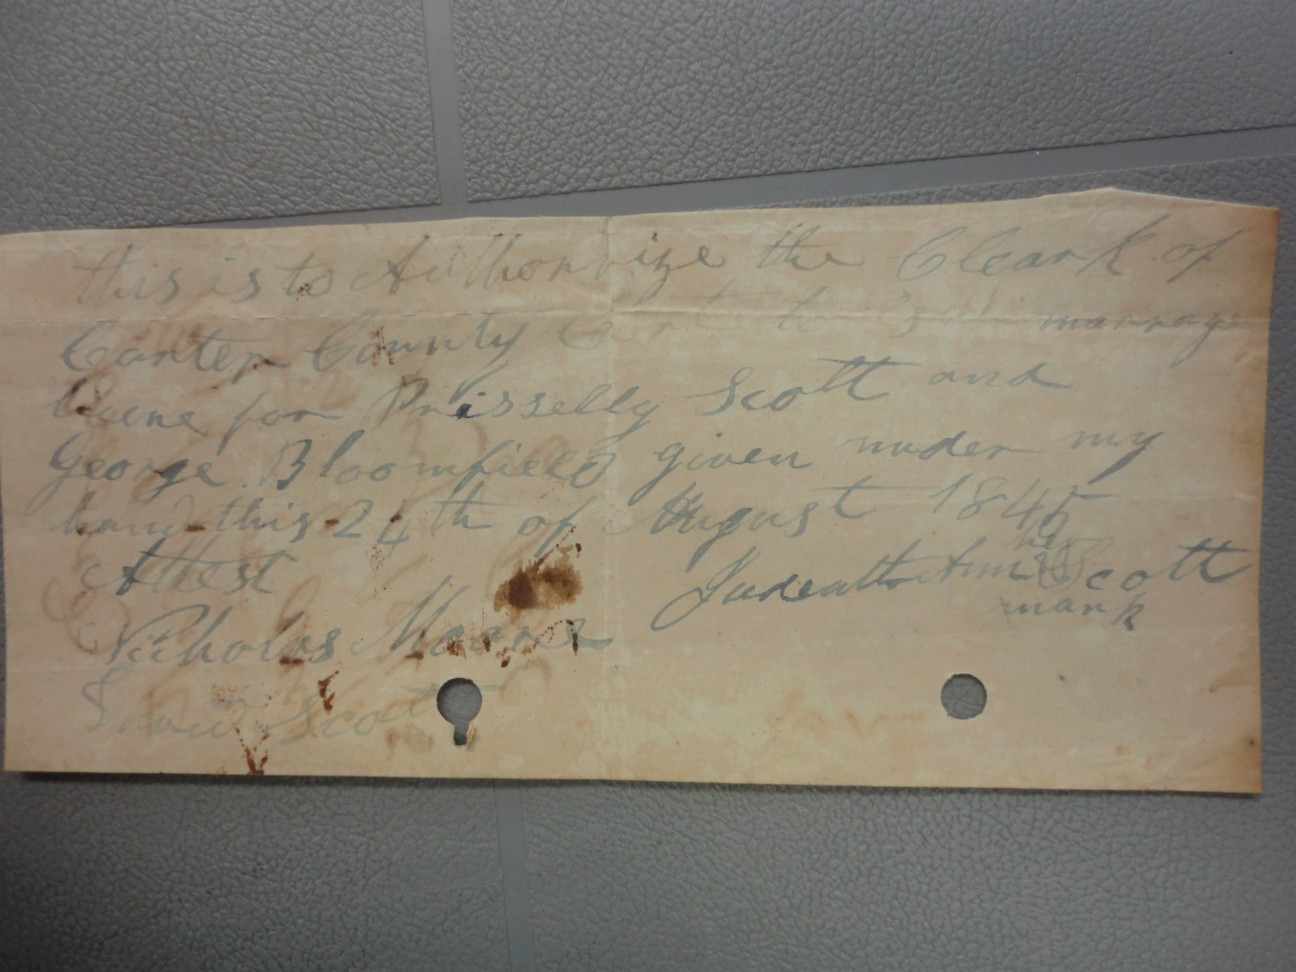 this is to Authorize the Cleark of
Carter County Cort to marrage
licene for Prisselly Scott and
George Bloomfield given under my
hand this 24th of August 1845
Attest
her
Judeath Ann Scott
mark
Nicholas Moore
David Scott